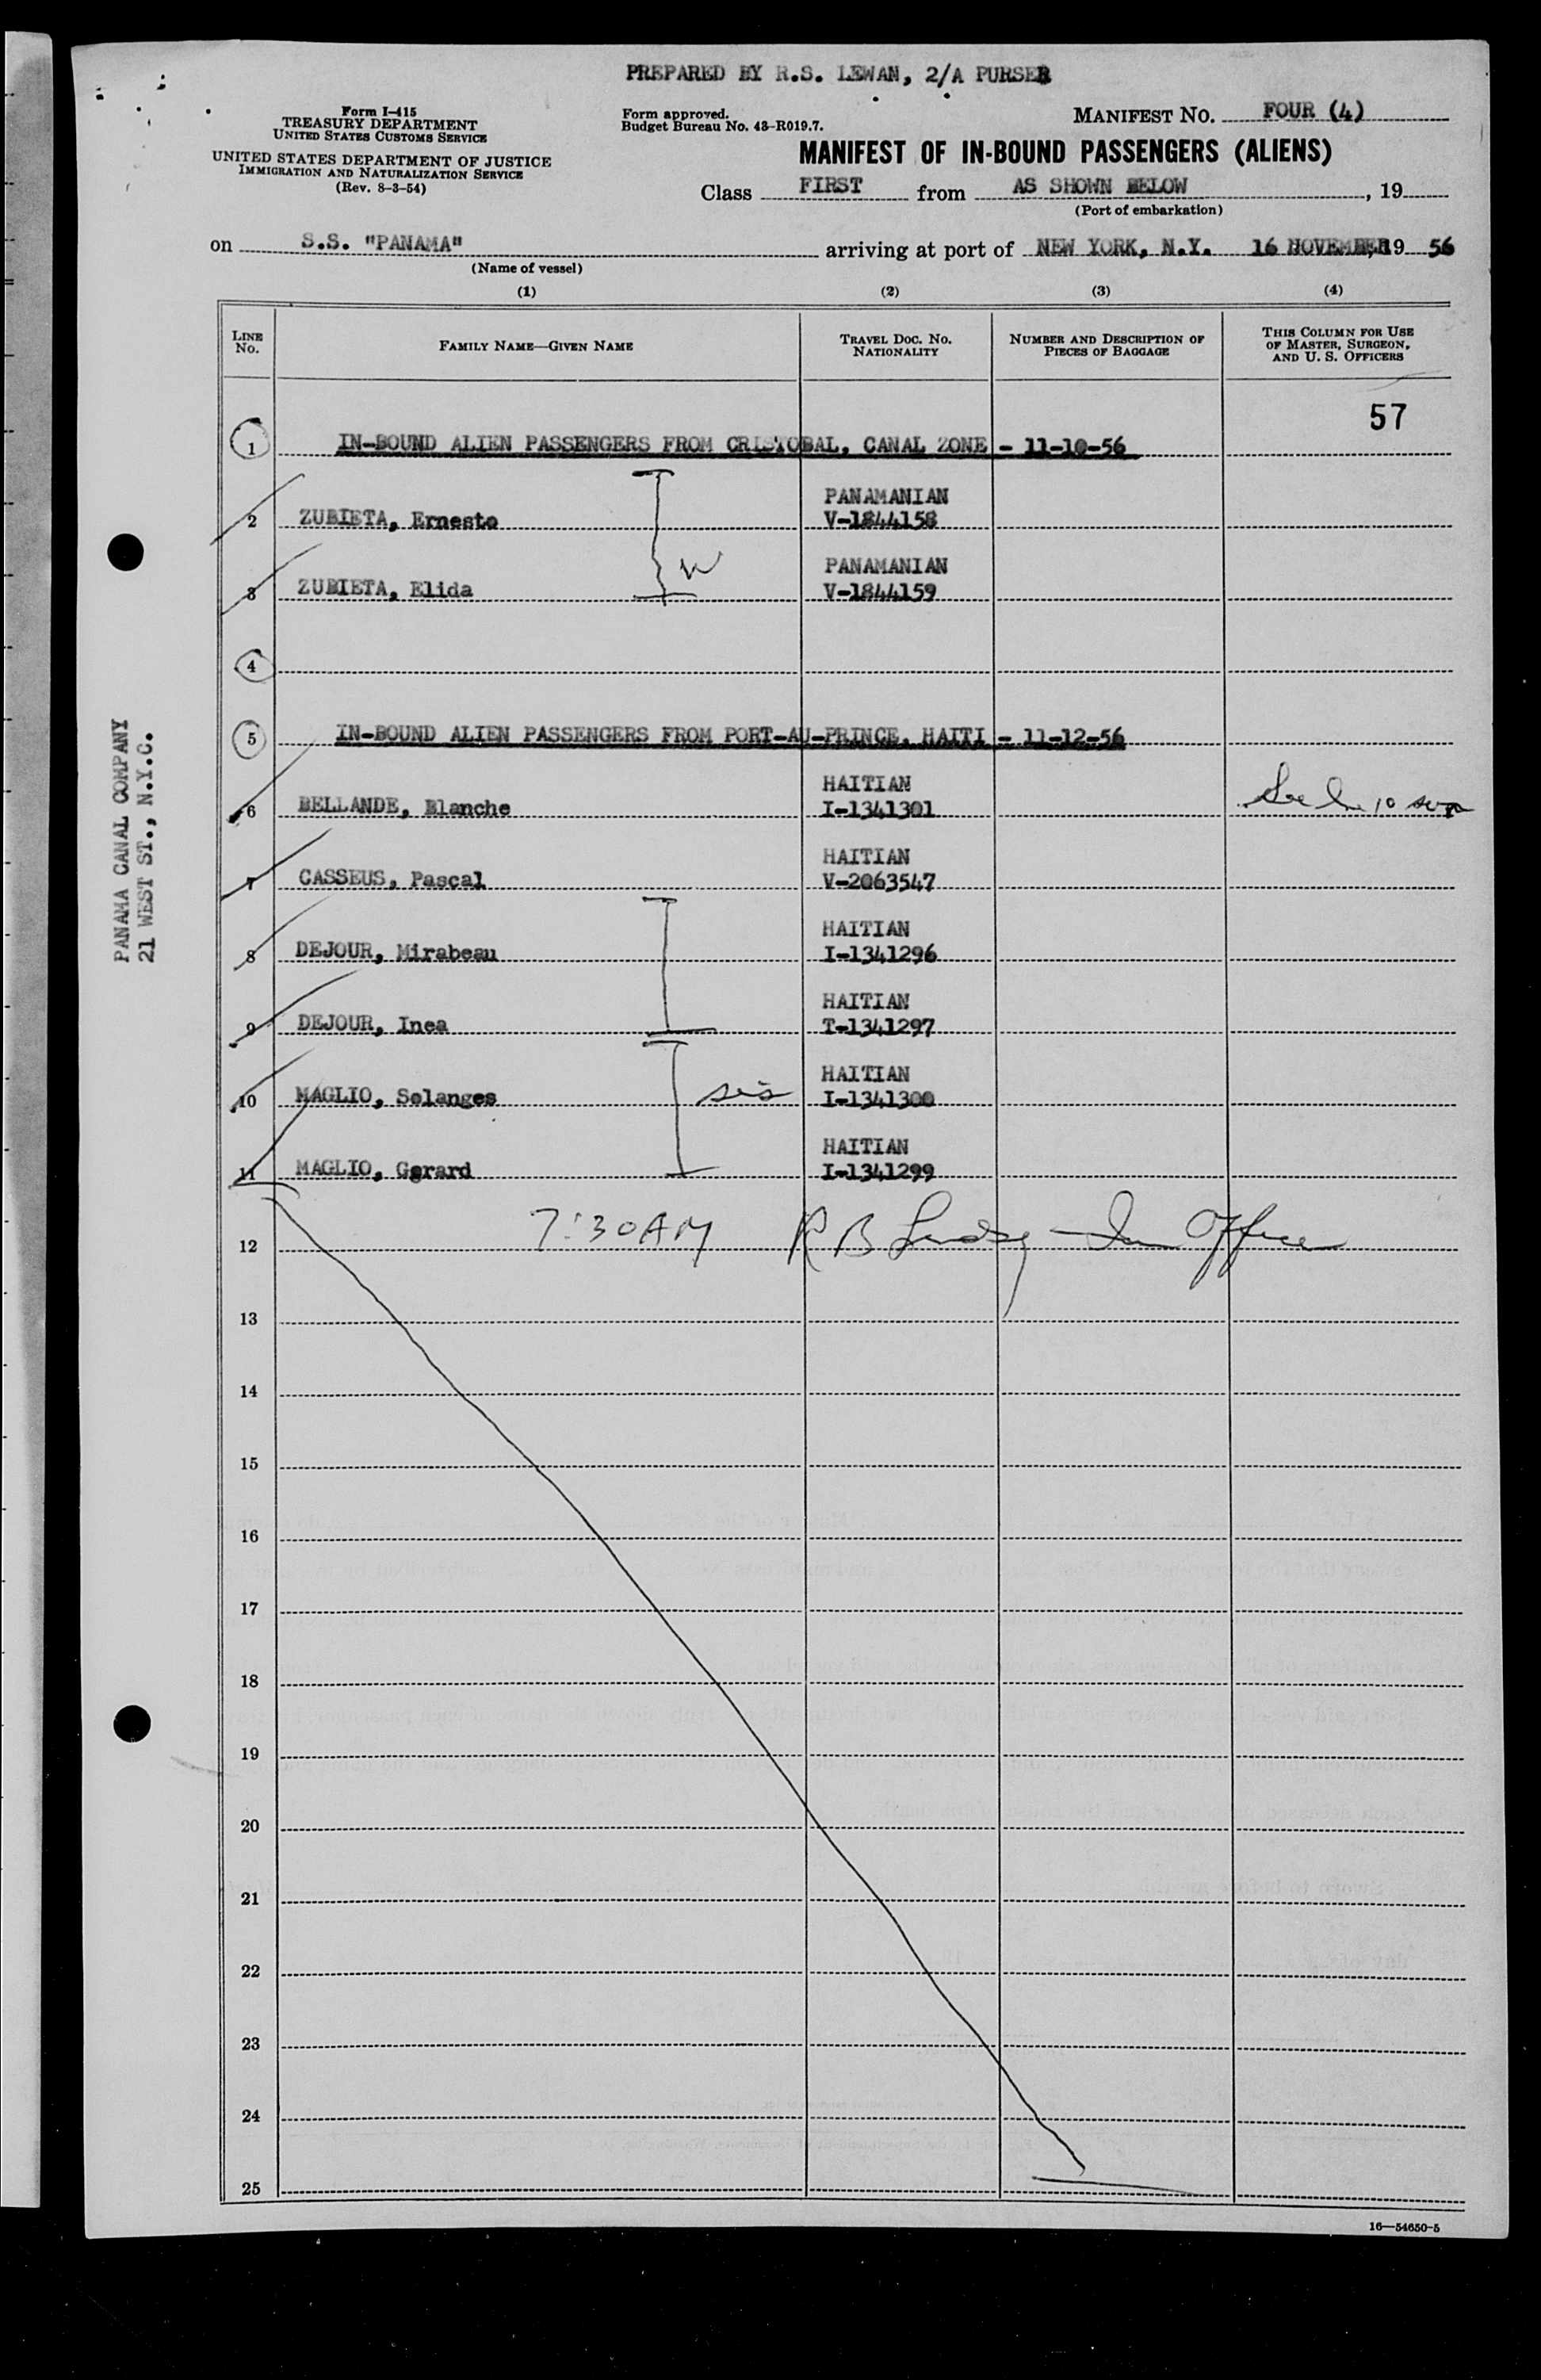 PREPARED BY R.S. LEWAN, 2/A PURSER
Form I-415
TREASURY DEPARTMENT
UNITED STATES CUSTOMS SERVICE
UNITED STATES DEPARTMENT OF JUSTICE
IMMIGRATION AND NATURALIZATION SERVICE
(Rev. 8-3-54)
Form approved.
Budget Bureau No. 43-R019.7.
MANIFEST NO. FOUR (4)
MANIFEST OF IN-BOUND PASSENGERS (ALIENS)
Class FIRST from AS SHOWN BELOW, 19
(Port of embarkation)
on S.S. "PANAMA" arriving at port of NEW YORK, N.Y. 16 NOVEMBER, 19 56
(Name of vessel)
(1) (2) (3) (4)
LINE NO.
FAMILY NAME—GIVEN NAME
TRAVEL DOC. NO.
NATIONALITY
NUMBER AND DESCRIPTION OF
PIECES OF BAGGAGE
THIS COLUMN FOR USE
OF MASTER, SURGEON,
AND U. S. OFFICERS
57
1 IN-BOUND ALIEN PASSENGERS FROM CRISTOBAL, CANAL ZONE - 11-10-56
PANAMANIAN
2 ZUBIETA, Ernesto V-1844158
W
PANAMANIAN
3 ZUBIETA, Elida V-1844159
4
5 IN-BOUND ALIEN PASSENGERS FROM PORT-AU-PRINCE, HAITI - 11-12-56
HAITIAN
6 BELLANDE, Blanche I-1341301 10
HAITIAN
7 CASSEUS, Pascal V-2063547
HAITIAN
8 DEJOUR, Mirabeau I-1341296
HAITIAN
9 DEJOUR, Inea T-1341297
HAITIAN
10 MAGLIO, Solanges sis I-1341300
HAITIAN
11 MAGLIO, Gerard I-1341299
7:30AM R B Office
12
13
14
15
16
17
18
19
20
21
22
23
24
25
16—54650-5
PANAMA CANAL COMPANY
21 WEST ST., N.Y.C.